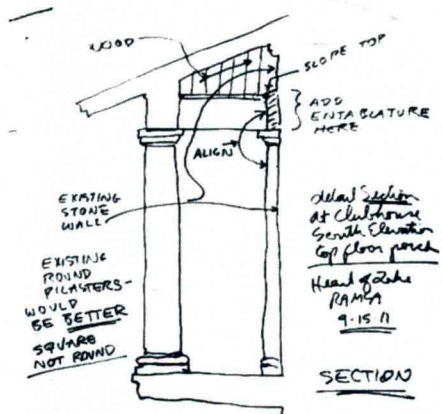 WOOD
SLOPE TOP
ADD
ENTABLATURE
HERE
ALIGN
EXISTING
STONE
WALL
EXISTING
ROUND
PILASTERS-
WOULD
BE BETTER
SQUARE
NOT ROUND
detail Section
at Clubhouse
South Elevation
top floor porch
Heart of Lake
RAMSA
9-15-11
SECTION